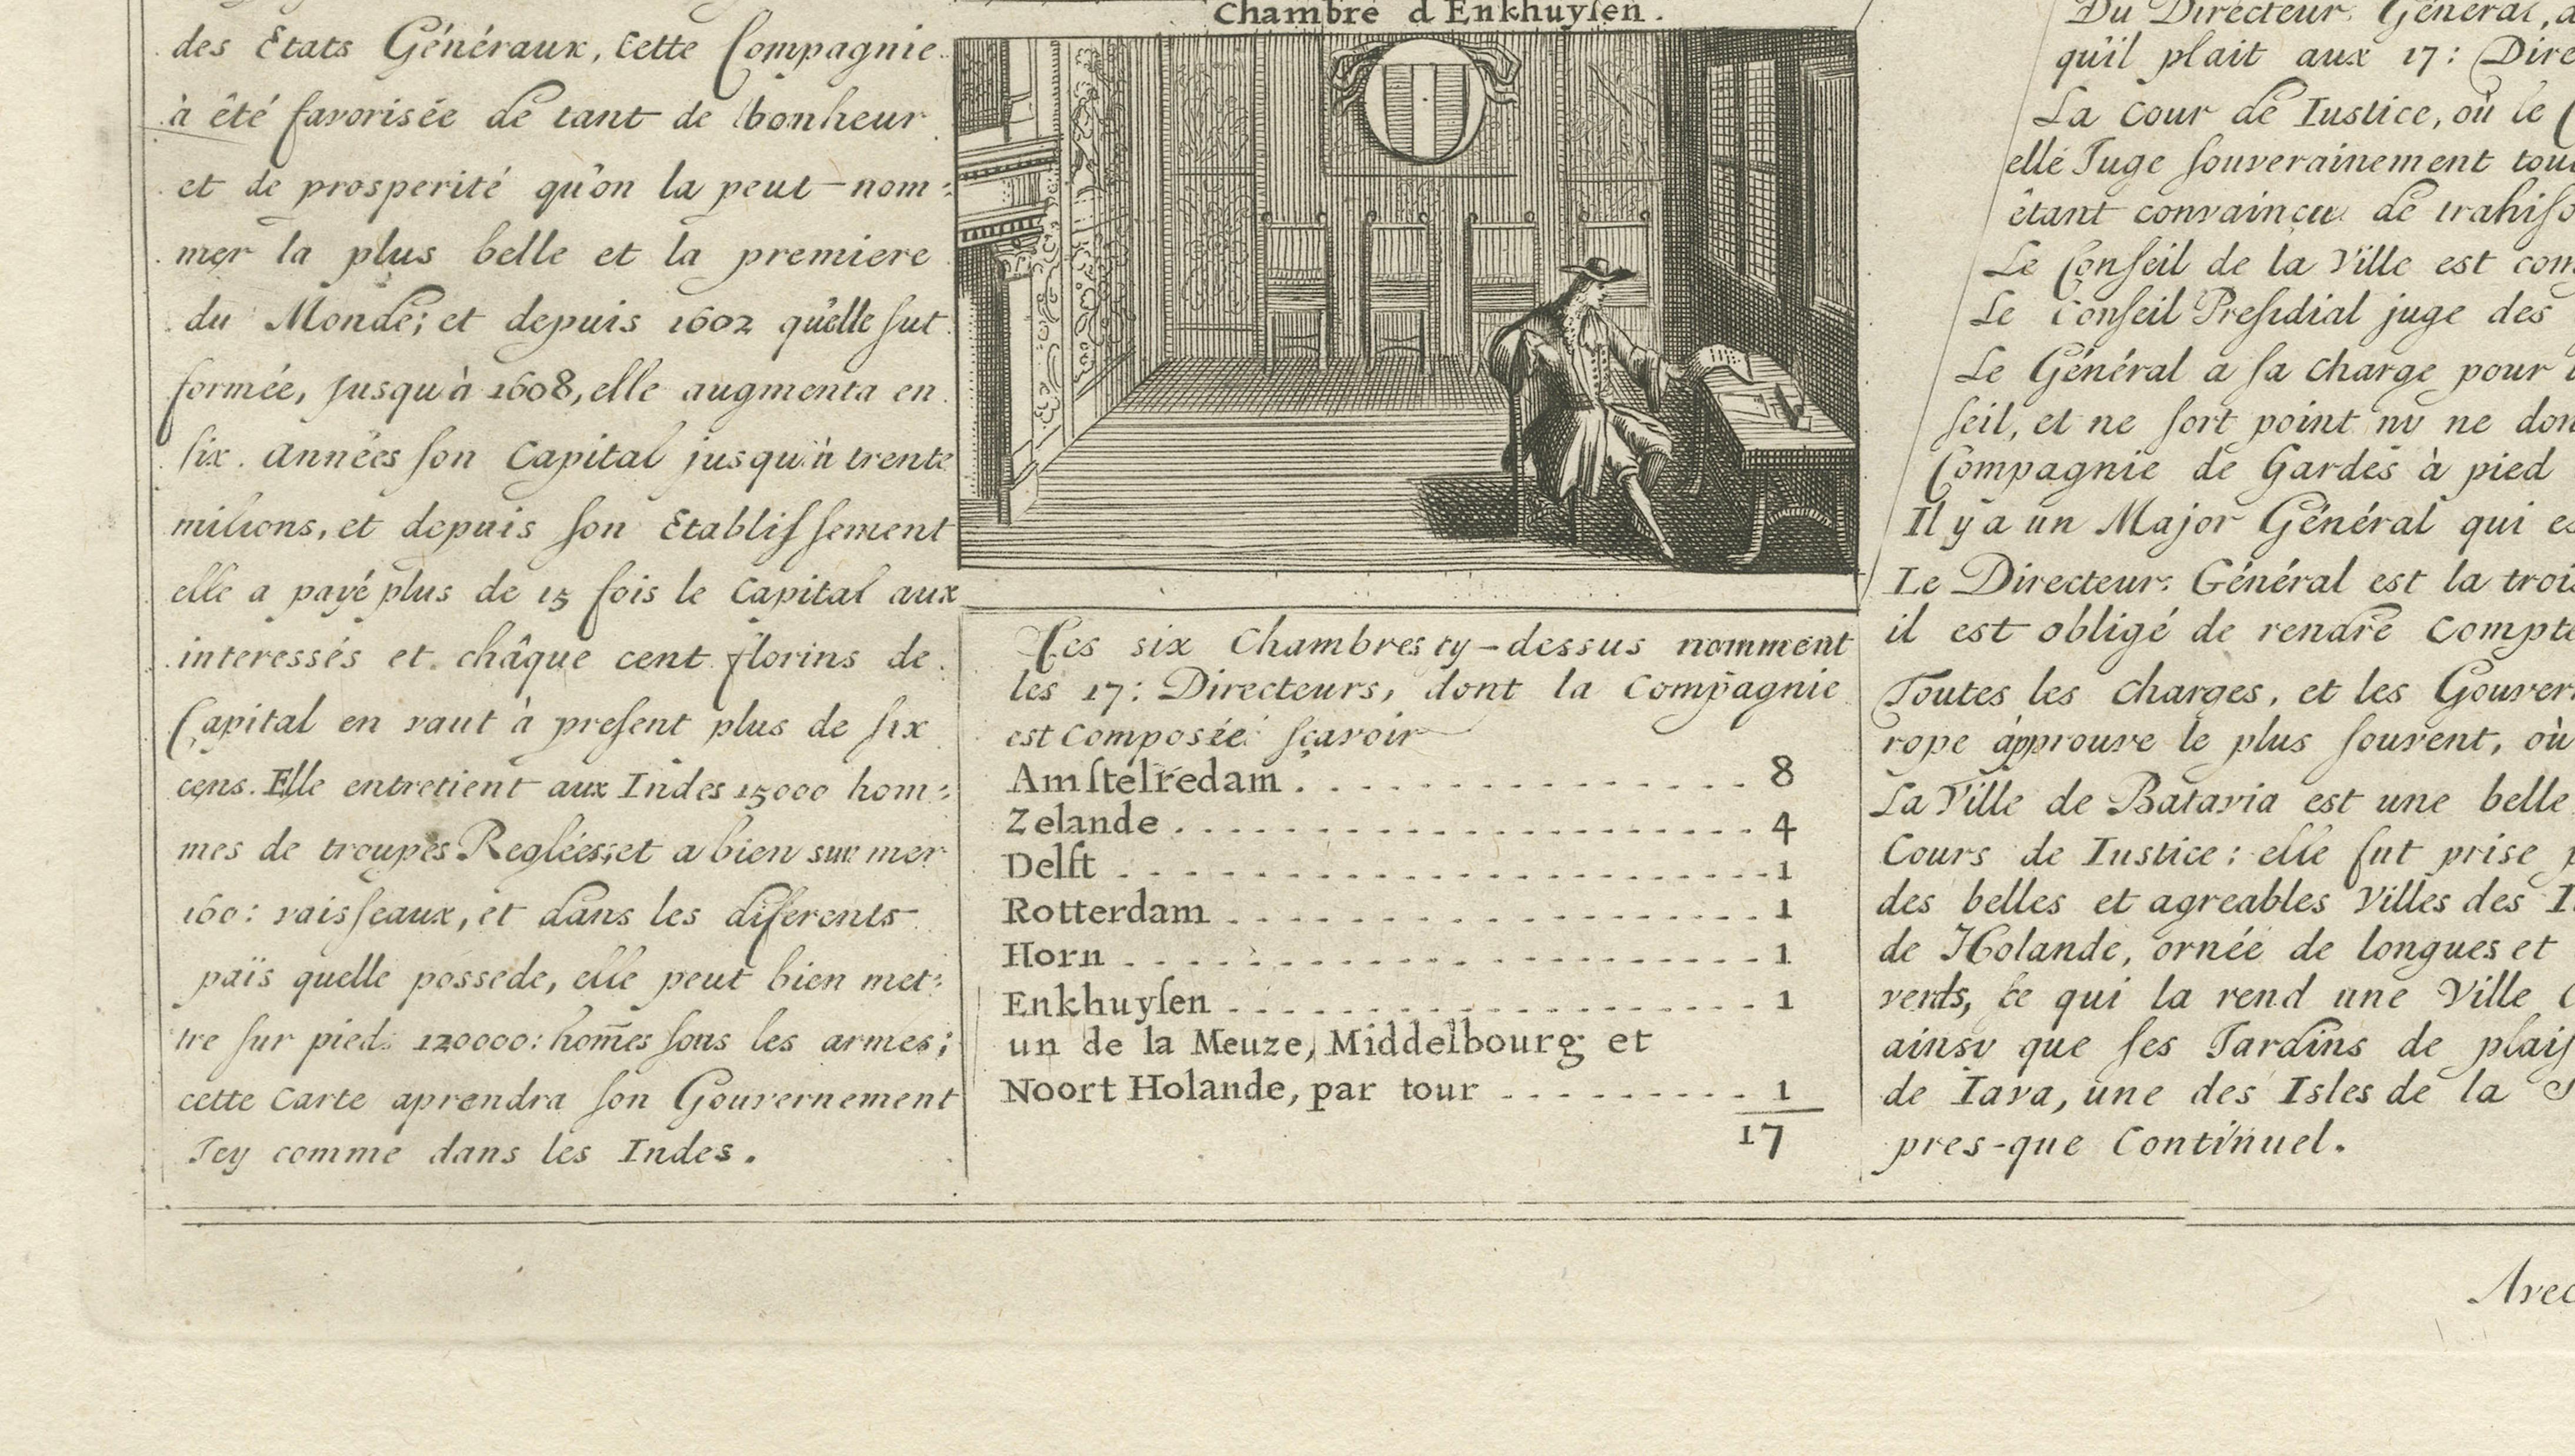 des Etats Généraux, cette Compagnie
à été favorisée de tant de bonheur
et de prosperité qu'on la peut-nom:
mer la plus belle et la premiere
du Monde; et depuis 1602 qu'elle fut
formée, jusqu'à 1608, elle augmenta en
six. années son Capital jusqu'à trente
milions, et depuis son Etablissement
elle a payé plus de 15 fois le Capital aux
interessés et. châque cent florins de
Capital en vaut à present plus de six
cens. Elle entretient aux Indes 15000 hom:
mes de troupes Reglées; et a bien sur mer
160: vaisseaux, et dans les diferents
païs quelle possede, elle peut bien met:
tre sur pied 120000: hom̃es sous les armes;
cette Carte aprendra son Gouvernement
Icy comme dans les Indes.
Chambre d'Enkhuysen.
Ces six Chambres cy-dessus nomment
les 17: Directeurs, dont la Compagnie
est Composée sçavoir
Amstelredam . . . . . . . . . . . . . . 8
Zelande . . . . . . . . . . . . . . . . . . 4
Delft . . . . . . . . . . . . . . . . . . . . 1
Rotterdam . . . . . . . . . . . . . . . . 1
Horn . . . . . . . . . . . . . . . . . . . . 1
Enkhuysen . . . . . . . . . . . . . . . . 1
un de la Meuze, Middelbourg et
Noort Holande, par tour . . . . . . . . . 1
17
Du Directeur Général,
qu'il plait aux 17:
La Cour de Iustice, où le
elle Juge souverainement
étant convaincu de
Le Conseil de la Ville est
Le Conseil Presidial juge des
Le Général a sa charge pour
seil, et ne sort point ny ne
Compagnie de Gardes à pied
Il y a un Major Général qui
Le Directeur: Général est la
il est obligé de rendre
Toutes les charges, et les
rope approuve le plus souvent, où
La Ville de Batavia est une belle
Cours de Iustice: elle fut prise
des belles et agreables Villes des
de Holande, ornée de longues et
verds, ce qui la rend une Ville
ainsy que ses Jardins de
de Iava, une des Isles de la
pres-que Continuel.
Avec